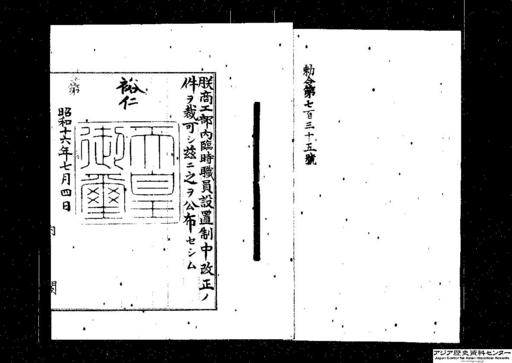 勅令第七百三十五號
朕商工部內臨時職員設置制中改正ノ
件ヲ裁可シ茲ニ之ヲ公布セシム
裕仁
天皇
御璽
昭和十六年七月四日
內閣
アジア歴史資料センター
Japan Center for Asian Historical Records